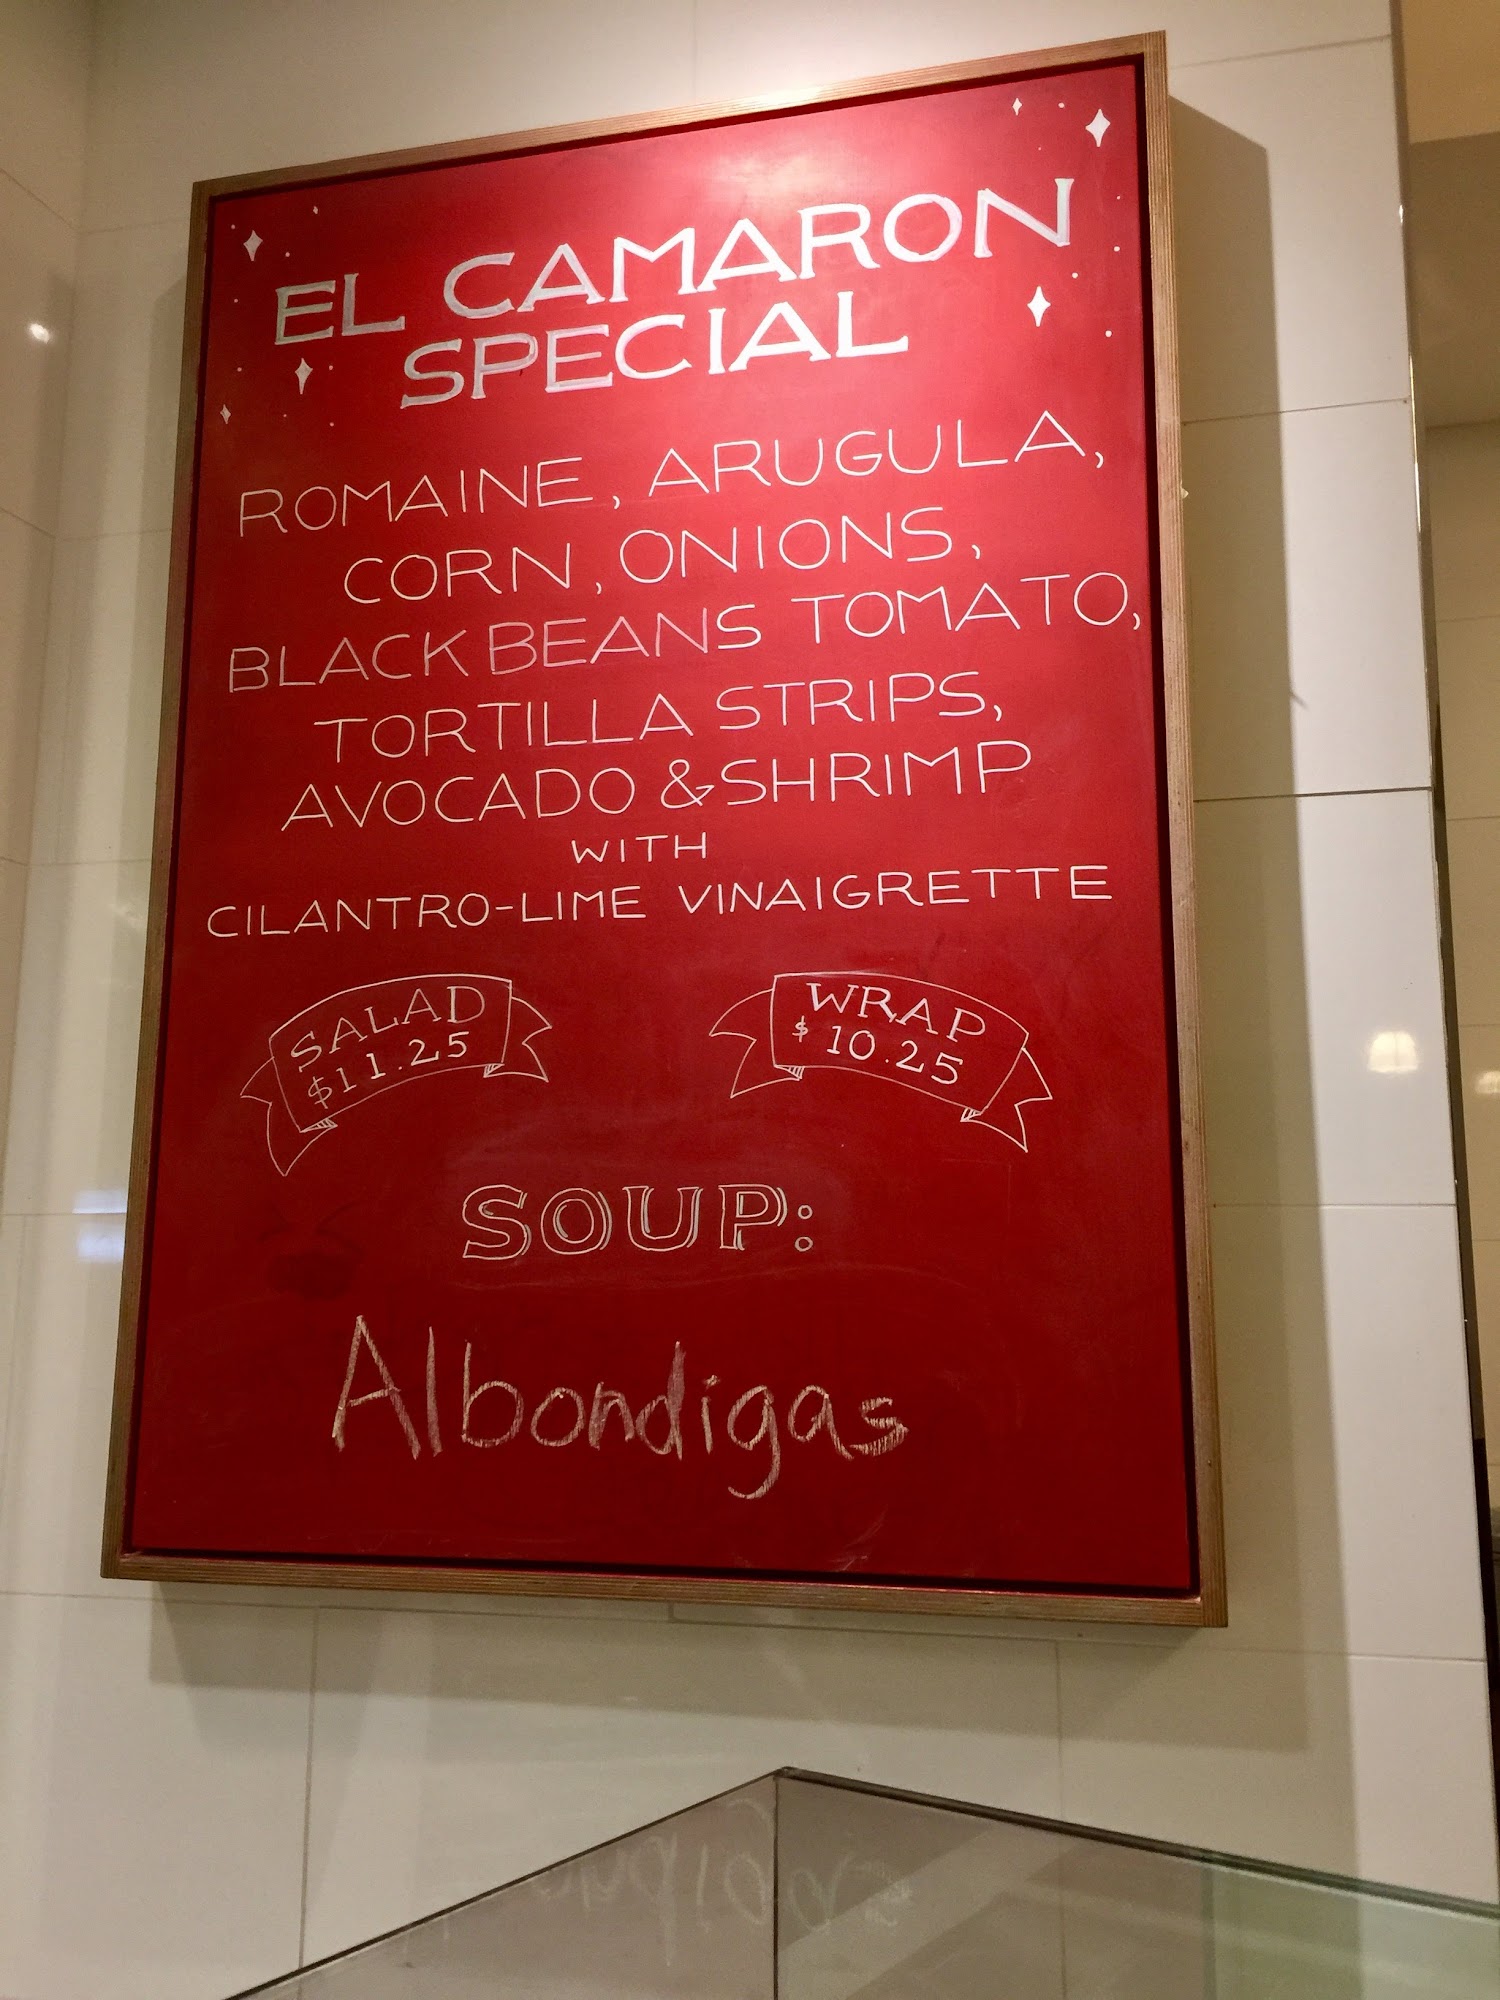 EL CAMARON
SPECIAL
ROMAINE, ARUGULA,
CORN, ONIONS,
BLACK BEANS TOMATO,
TORTILLA STRIPS,
AVOCADO & SHRIMP
WITH
CILANTRO-LIME VINAIGRETTE
SALAD
$11.25
WRAP
$10.25
SOUP:
Albondigas